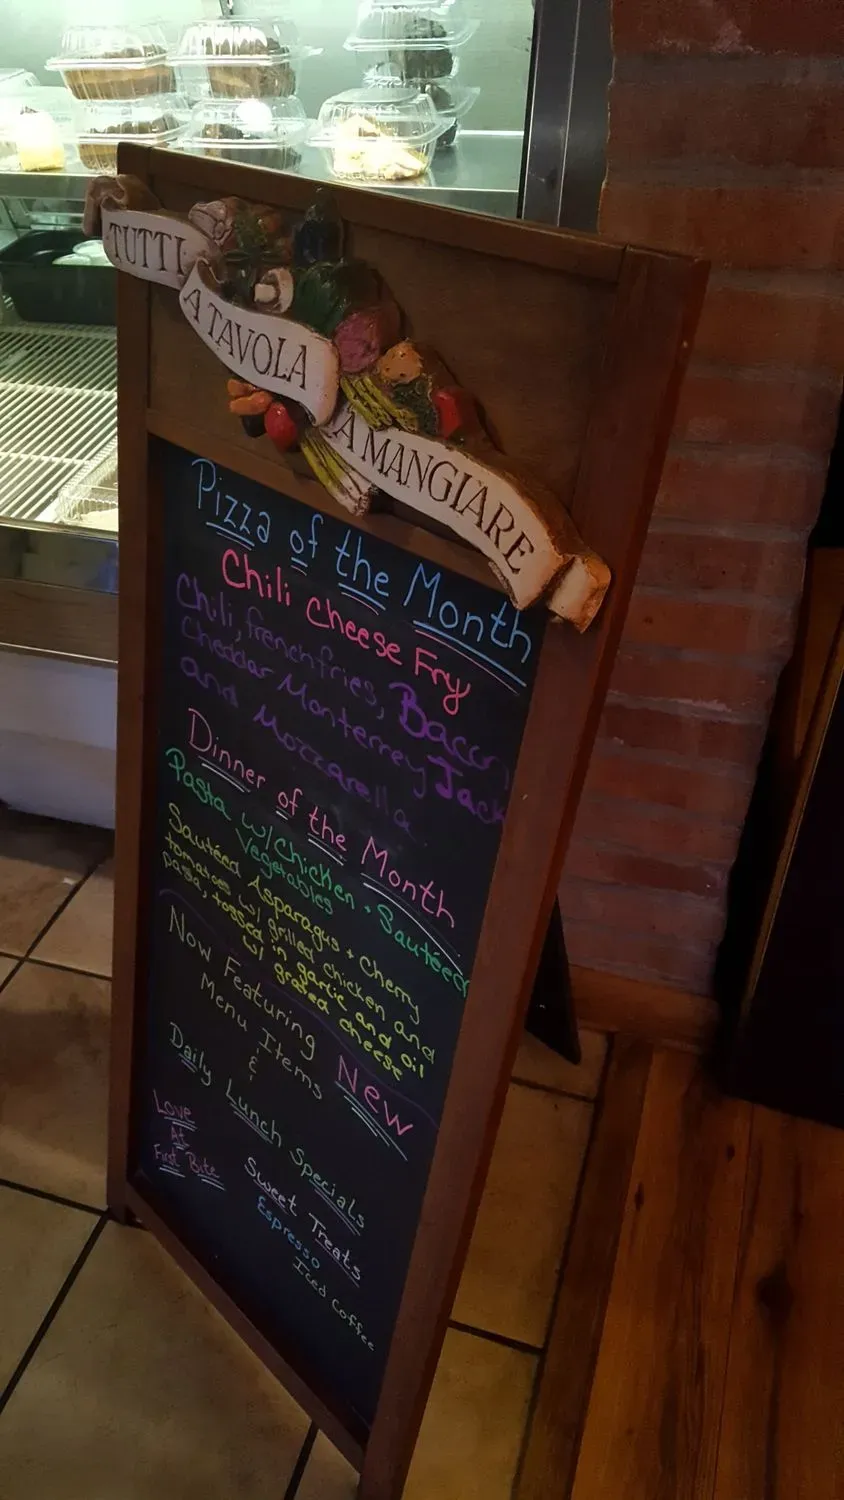 TUTTI
A TAVOLA
A MANGIARE
Pizza of the Month
Chili Cheese Fry
Chili, french fries, Bacon
Cheddar Monterrey Jack
and Mozzarella.
Dinner of the Month
Pasta w/ Chicken + Sautéed
Vegetables
Sautéed Asparagus + Cherry
tomatoes w/ grilled chicken and
pasta, tossed in garlic and oil
w/ grated cheese
Now Featuring New
Menu Items
&
Daily Lunch Specials
Love
At
First Bite
Sweet Treats
Espresso
Iced Coffee